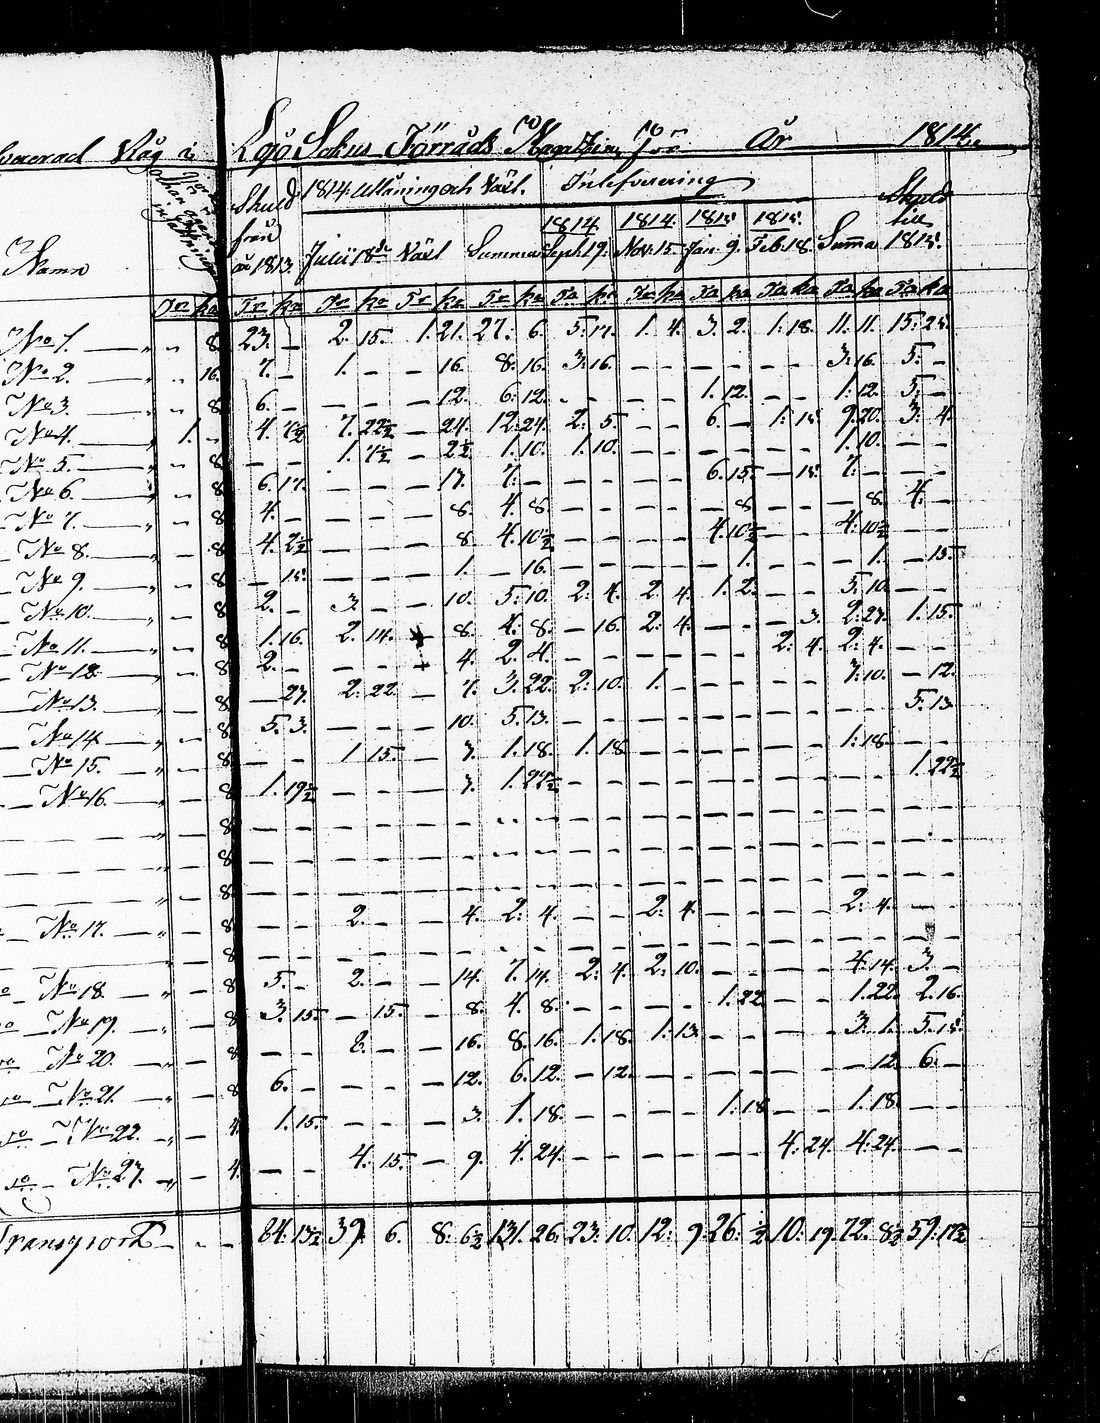 Råg i Lojo Sokns Förråds Magazin för År 1814.
Skuld från år 1813. 1814. Utlåning och Växt. Inlefverering Skuld till 1815.
Namn Julii 18de Växt Summa 1814. Sept. 19. 1814. Nov. 15. 1815. Jan. 9. 1815. Feb. 18. Summa
Tr ka Tr ka Tr ka Tr ka Tr ka Ta ka Ta ka Ta ka Ta ka Ta ka Ta ka
No 1. — „ — 8. 23. — 2. 15. 1. 21. 27. 6. 5. 17. 1. 4. 3. 2. 1. 18. 11. 11. 15. 25.
No 2. — „ — 16. 7. — 1. — — 16. 8. 16. 3. 16. — — — — — — 3. 16. 5. —
No 3. — „ — 8. 6. — — — — 12. 6. 12. — — — — 1. 12. — — 1. 12. 5. —
No 4. — 1. — 4. 7½ 7. 22½ — 24. 12. 24. 2. 5. — — 6. — 1. 15. 9. 20. 3. 4.
No 5. — „ — 8. — — 1. 7½ — 2½ 1. 10. 1. 10. — — — — — — 1. 10. — —
No 6. — „ — 8. 6. 17. — — — 17. 7. — — — — — 6. 15. — 15. 7. — — —
No 7. — „ — 8. 4. — — — — 8. 4. 8. — — — — — 8. — — — 8. 4. —
No 8. — „ — 8. 4. 2½ — — — 8. 4. 10½ — — — — 4. 10½ — — 4. 10½ — —
No 9. — „ — 8. — 15. — — — 1. — 16. — — — — — 1. — — — 1. — 15.
No 10. — „ — 8. 2. — 3. — — 10. 5. 10. 2. 4. 2. 4. 1. 2. — — 5. 10. — —
No 11. — „ — 8. 1. 16. 2. 14. — 8. 4. 8. — 16. 2. 4. — — — 3. 2. 23. 1. 15.
No 12. — „ — 8. 2. — — — — 4. 2. 4. — — — — — — 2. 4. 2. 4. — —
No 13. — 8. — 27. 2. 22. — 7. 3. 22. 2. 10. 1. — — — — — 3. 10. — 12.
No 14. — „ — 8. 5. 3. — — — 10. 5. 13. — — — — — — — — — — 5. 13.
No 15. — „ — 8. — — 1. 15. — 3. 1. 18. 1. 18. — — — — — — 1. 18. — —
No 16. — „ — 8. 1. 19½ — — — 3. 1. 22½ — — — — — — — — — — 1. 22½
— — — „ — 8. — — — —
— — — „ — 8. — — — —
— — — „ — 8. — — — —
No 17. — „ — 8. — — 2. — — 4. 2. 4. — — 2. 4. — — — — 2. 4. — —
— — — „ — 8. — — — —
No 18. — „ — 8. 5. — 2. — — 14. 7. 14. 2. 4. 2. 10. — — — — 4. 14. 3. —
No 19. — „ — 8. 3. 15. — 15. — 8. 4. 8. — — — — 1. 22. — — 1. 22. 2. 16.
No 20. — „ — 8. — — 8. — — 16. 8. 16. 1. 18. 1. 13. — — — — 3. 1. 5. 15.
No 21. — „ — 8. 6. — — — — 12. 6. 12. — 12. — — — — — — — 12. 6. —
No 22. — „ — 4. 1. 15. — — — 3. 1. 18. — — — — 1. 18. — — 1. 18. — —
No 23. — „ — 4. — — 4. 15. — 9. 4. 24. — — — — — — 4. 24. 4. 24. — —
Transport — — — 84. 13½ 39. 6. 8. 6½ 131. 26. 23. 10. 12. 9. 26. ½ 10. 19. 72. 8½ 59. 17½